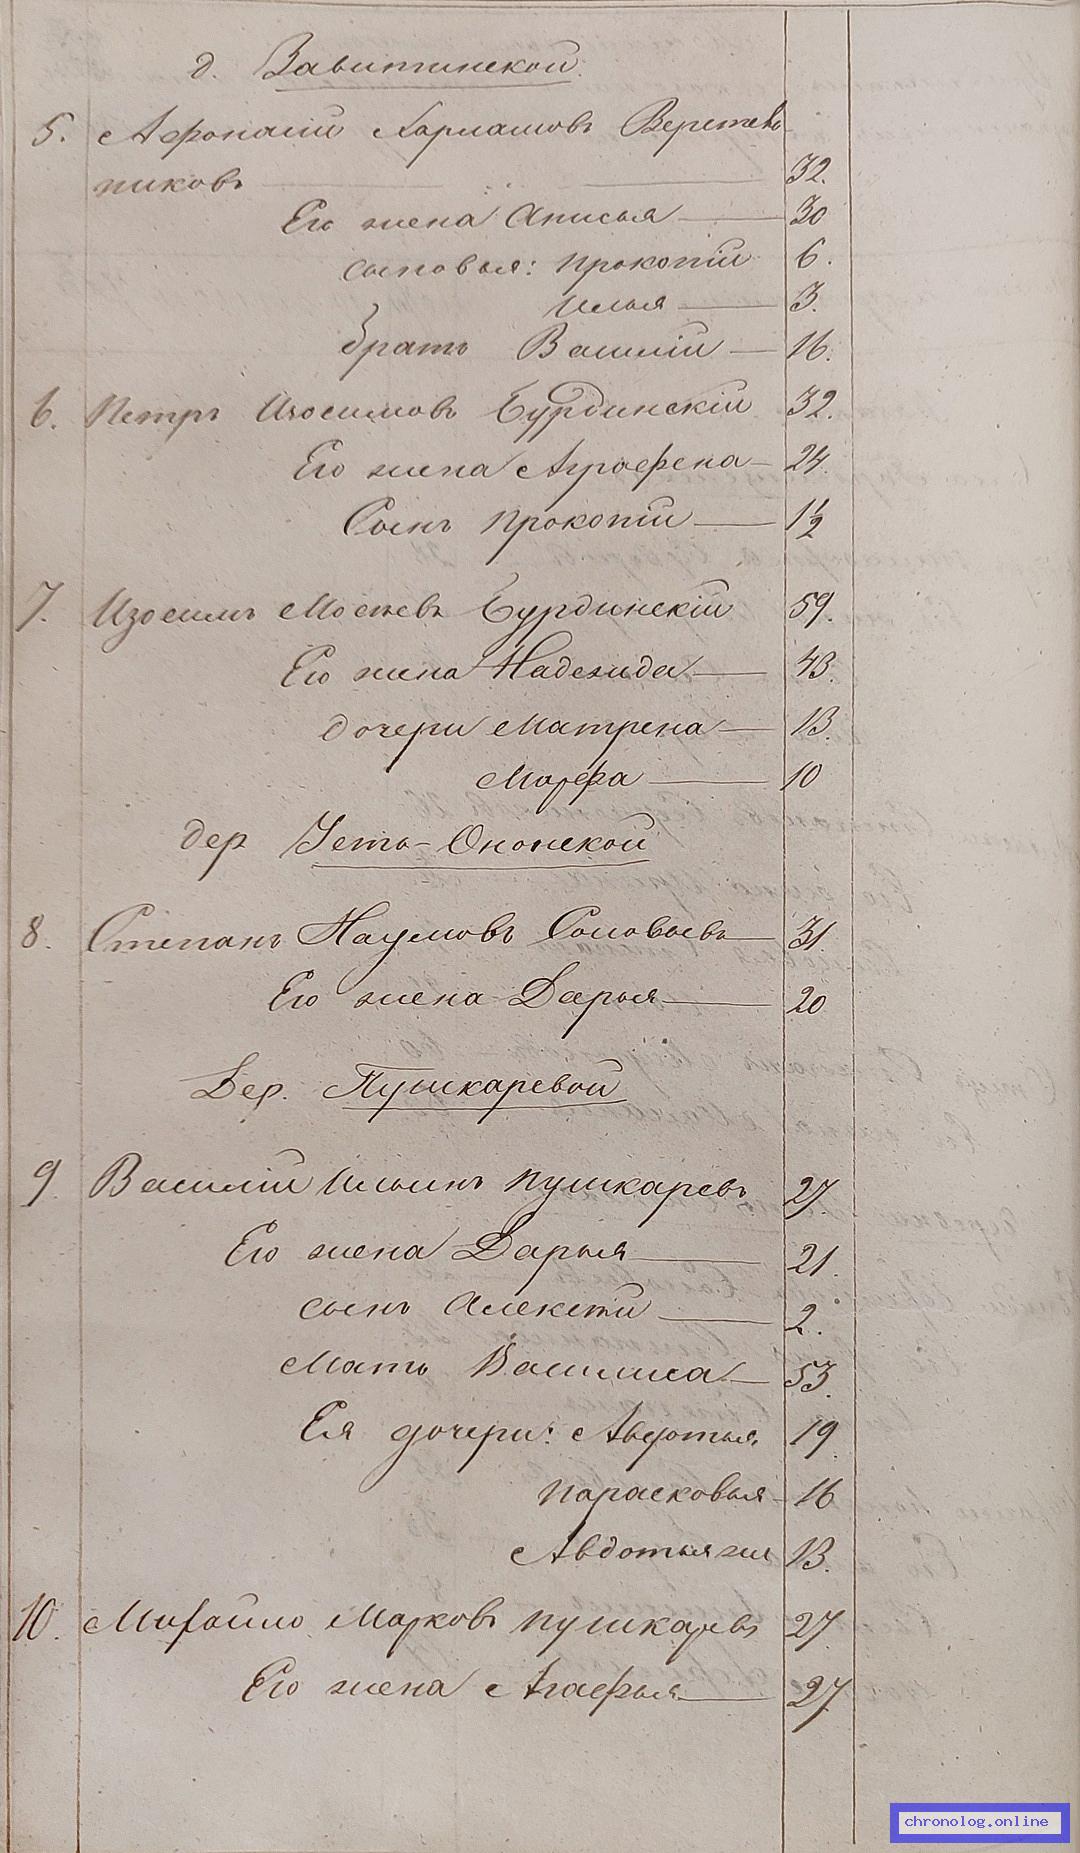 д. Завитинской
5. Афонасий Харламовъ Веретен
никовъ 32.
Его жена Анисья 30
сыновья: Прокопій 6.
Илья 3.
братъ Василій 16.
6. Петръ Изосимовъ Бурдинскій 32.
Его жена Аграфена 24.
Сынъ Прокопій 1½
7. Изосимъ Мосеевъ Бурдинскій 59.
Его жена Надежда 43.
дочери Матрена 13.
Марфа 10
дер Усть-Ононской
8. Степанъ Наумовъ Соловьевъ 31
Его жена Дарья 20
Дер. Пушкаревой
9. Василій Ильинъ Пушкаревъ 27.
Его жена Дарья 21.
сынъ Алексѣй 2.
Мать Василиса 53.
Ея дочери: Авдотья 19.
Парасковья 16
Авдотья же 13.
10. Михайло Марковъ Пушкаревъ 27.
Его жена Агафья 27
chronolog.online